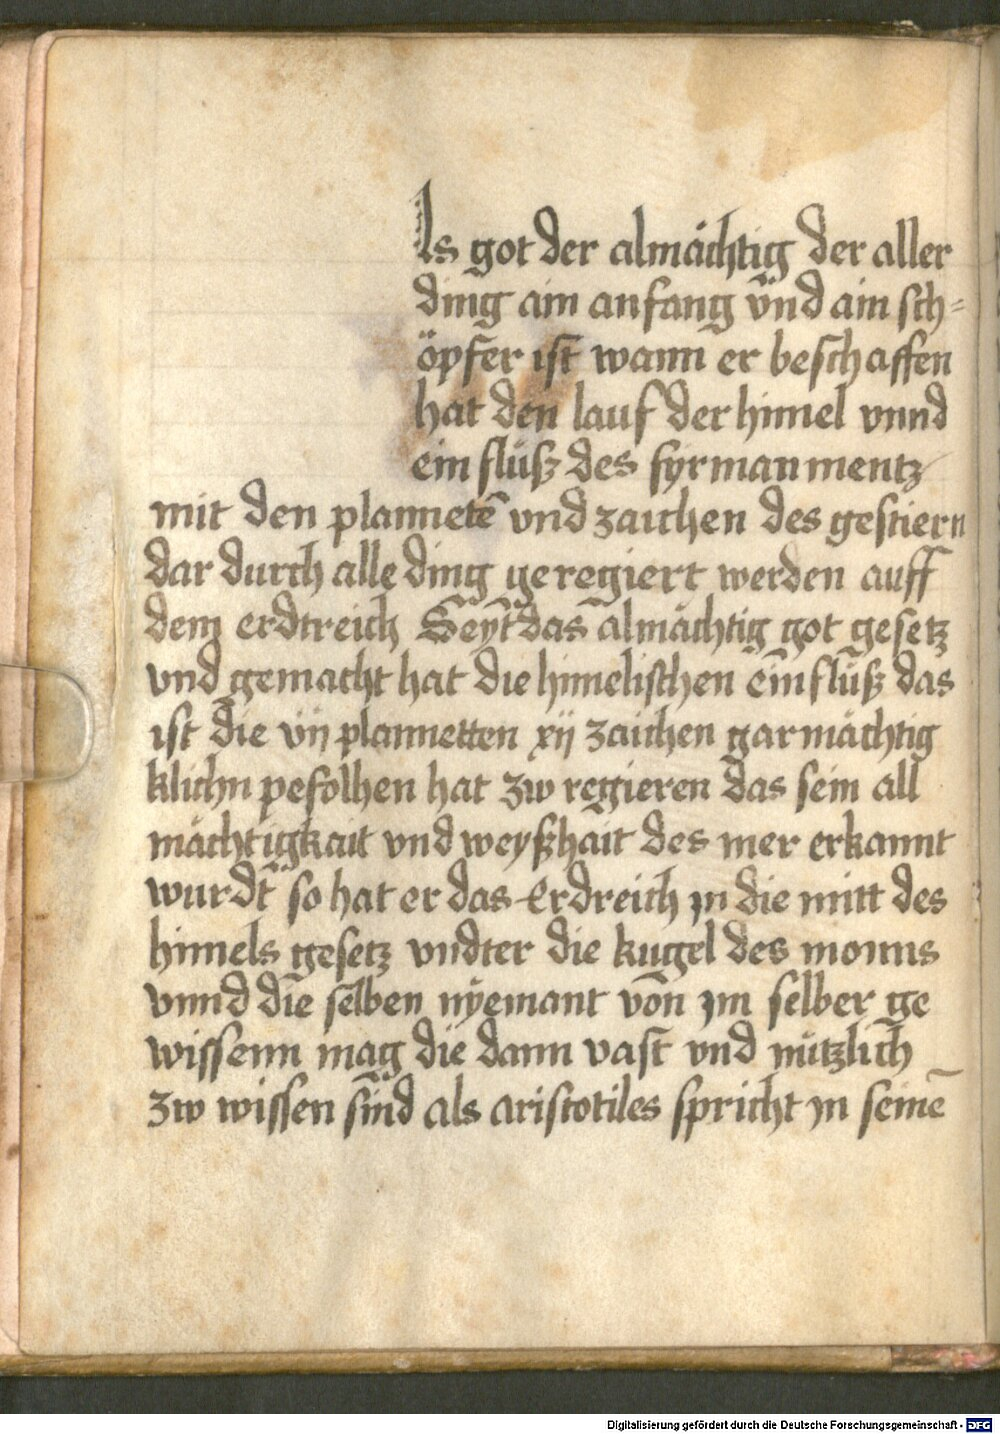 ls got der almächtig der aller
ding ain anfang vnd ain sch=
öpfer ist wann er beschaffen
hat den lauf der himel vnnd
ein flüß des fyrmanmentz
mit den plannetē vnd zaichen des gestiern
dar durch alle ding geregiert werden auff
dem erdtreich Seyt das almächtig got gesetz
vnd gemacht hat die himelischen einflüß das
ist die vij plannetten xij zaichen gar mächtig
klichn pefolhen hat zw regieren das sein all
mächtigkait vnd weyßhait des mer erkannt
wurdt so hat er das Erdreich jn die mitt des
himels gesetz vndter die kugel des monns
vnnd die selben nÿemant von jm selber ge
wissenn mag die dann vast vnd nützlich
zw wissen sind als aristotiles spricht jn seinē
Digitalisierung gefördert durch die Deutsche Forschungsgemeinschaft - DFG